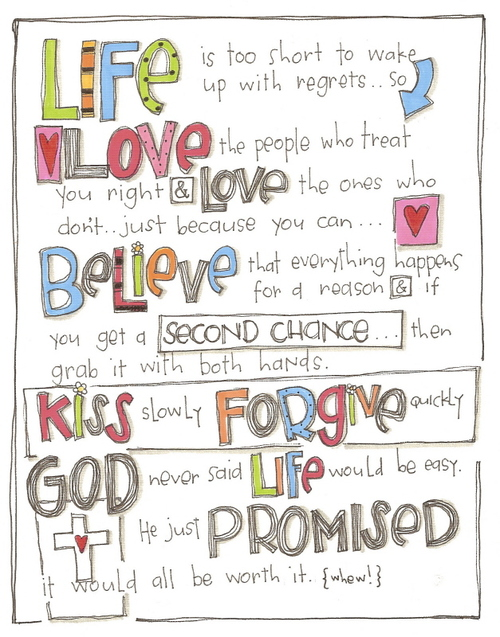 LiFe is too short to wake
up with regrets.. so
LOVe the people who treat
you right & LOVe the ones who
don't..just because you can...
BeLieve that everything happens
for a reason & if
you get a SECOND CHANCE... then
grab it with both hands.
KiSS slowly FORgive quickly
GOD never said LiFe would be easy.
He just PROMISeD
it would all be worth it.. {whew!}